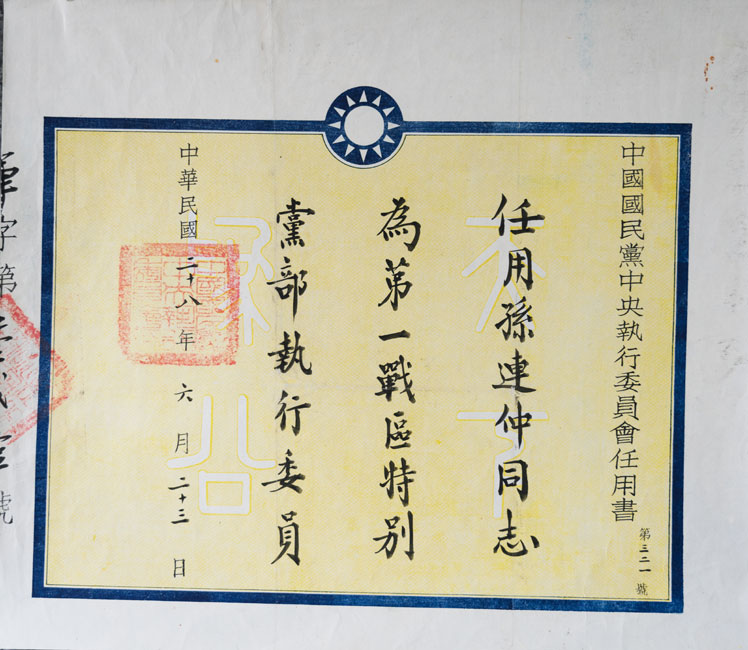 中國國民黨中央執行委員會任用書
第三二一號
任用孫連仲同志
為第一戰區特別
黨部執行委員
中華民國二十八年六月二十三日
字第
號